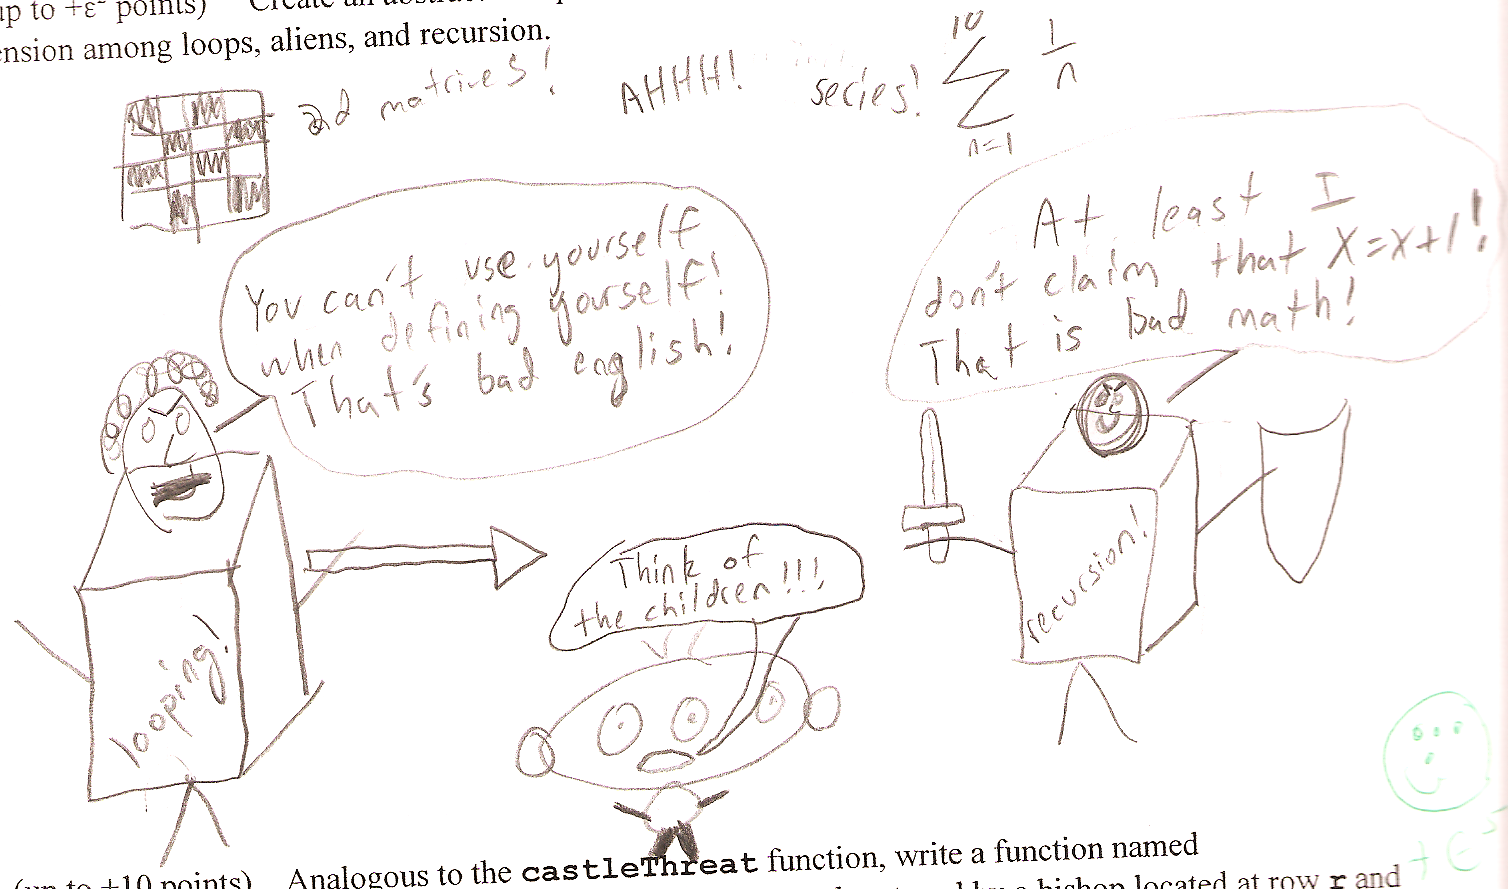 up to +ε² points) Create an abstract
ension among loops, aliens, and recursion.
2d matrives! AHHH! series! 10 ∑ n=1 1/n
You can't use yourself
when defining yourself!
That's bad english!
At least I
don't claim that X=X+1!
That is bad math!
Think of
the children!!!
looping!
recursion!
+ε²
(up to +10 points) Analogous to the castleThreat function, write a function named
by a bishop located at row r and